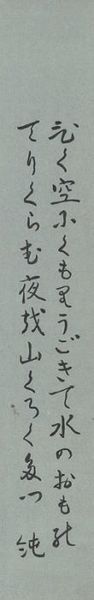 ひく空にくもりうごきて水のおもの
てりくらむ夜越山くろく多つ　純